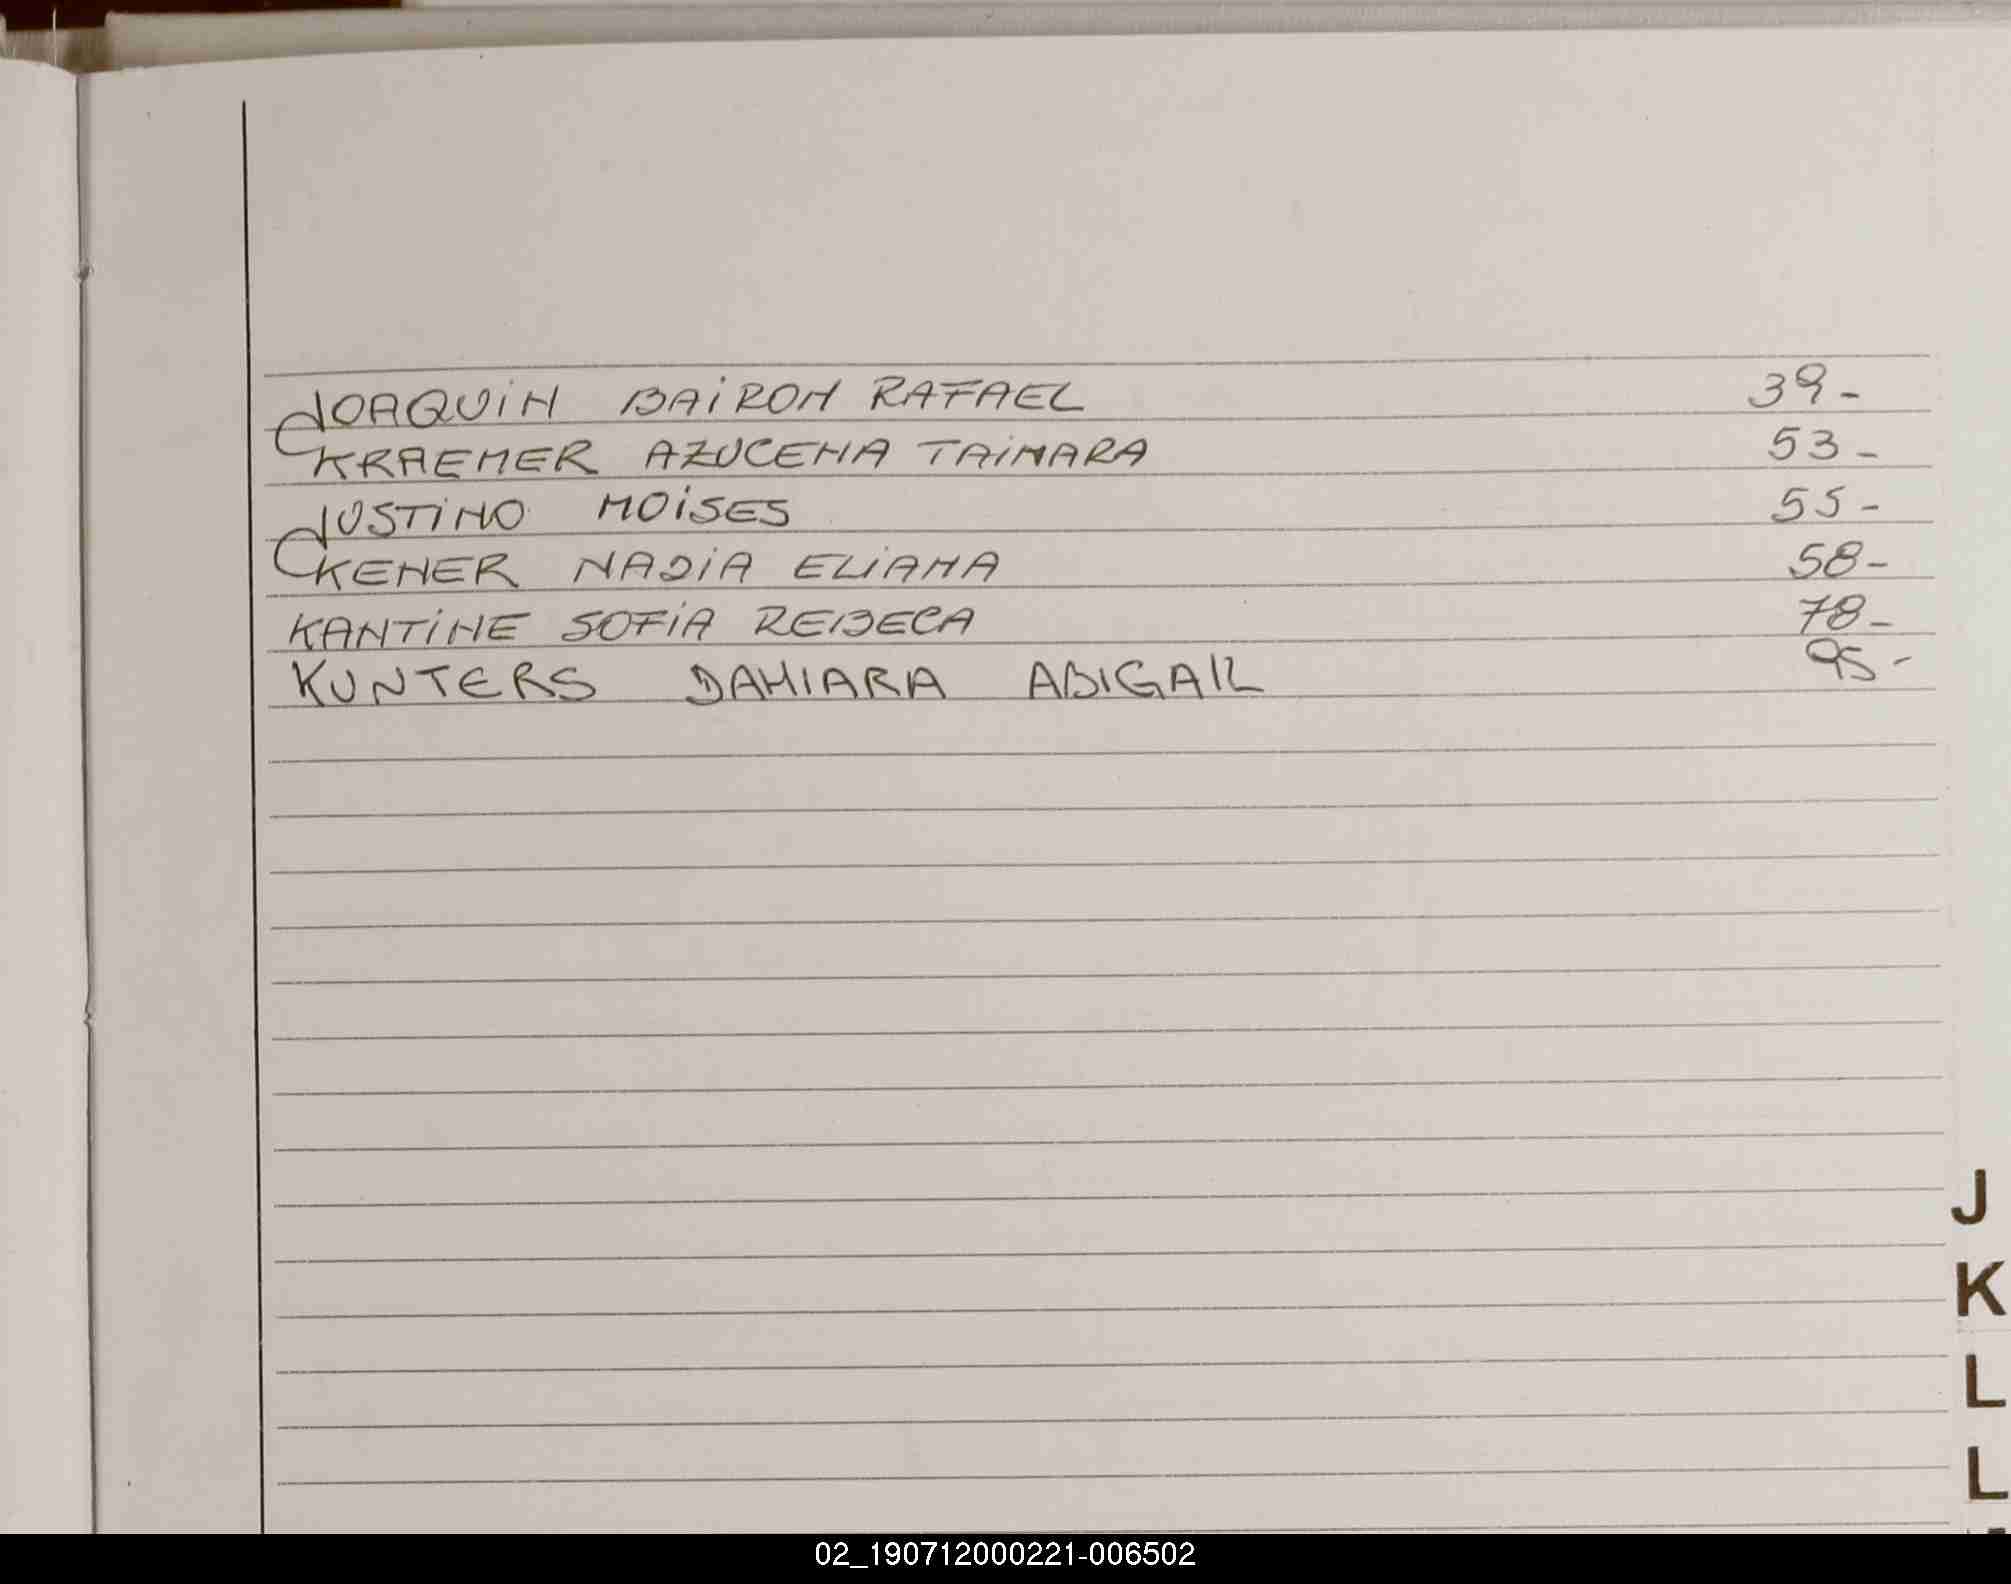 JOAQUIN BAIRON RAFAEL 39-
KRAEMER AZUCENA TAIMARA 53-
JUSTINO MOISES 55-
KENER NADIA ELIANA 58-
KANTINE SOFIA REBECA 78-
KUNTERS DAHIARA ABIGAIL 95-
J
K
L
L
02_190712000221-006502